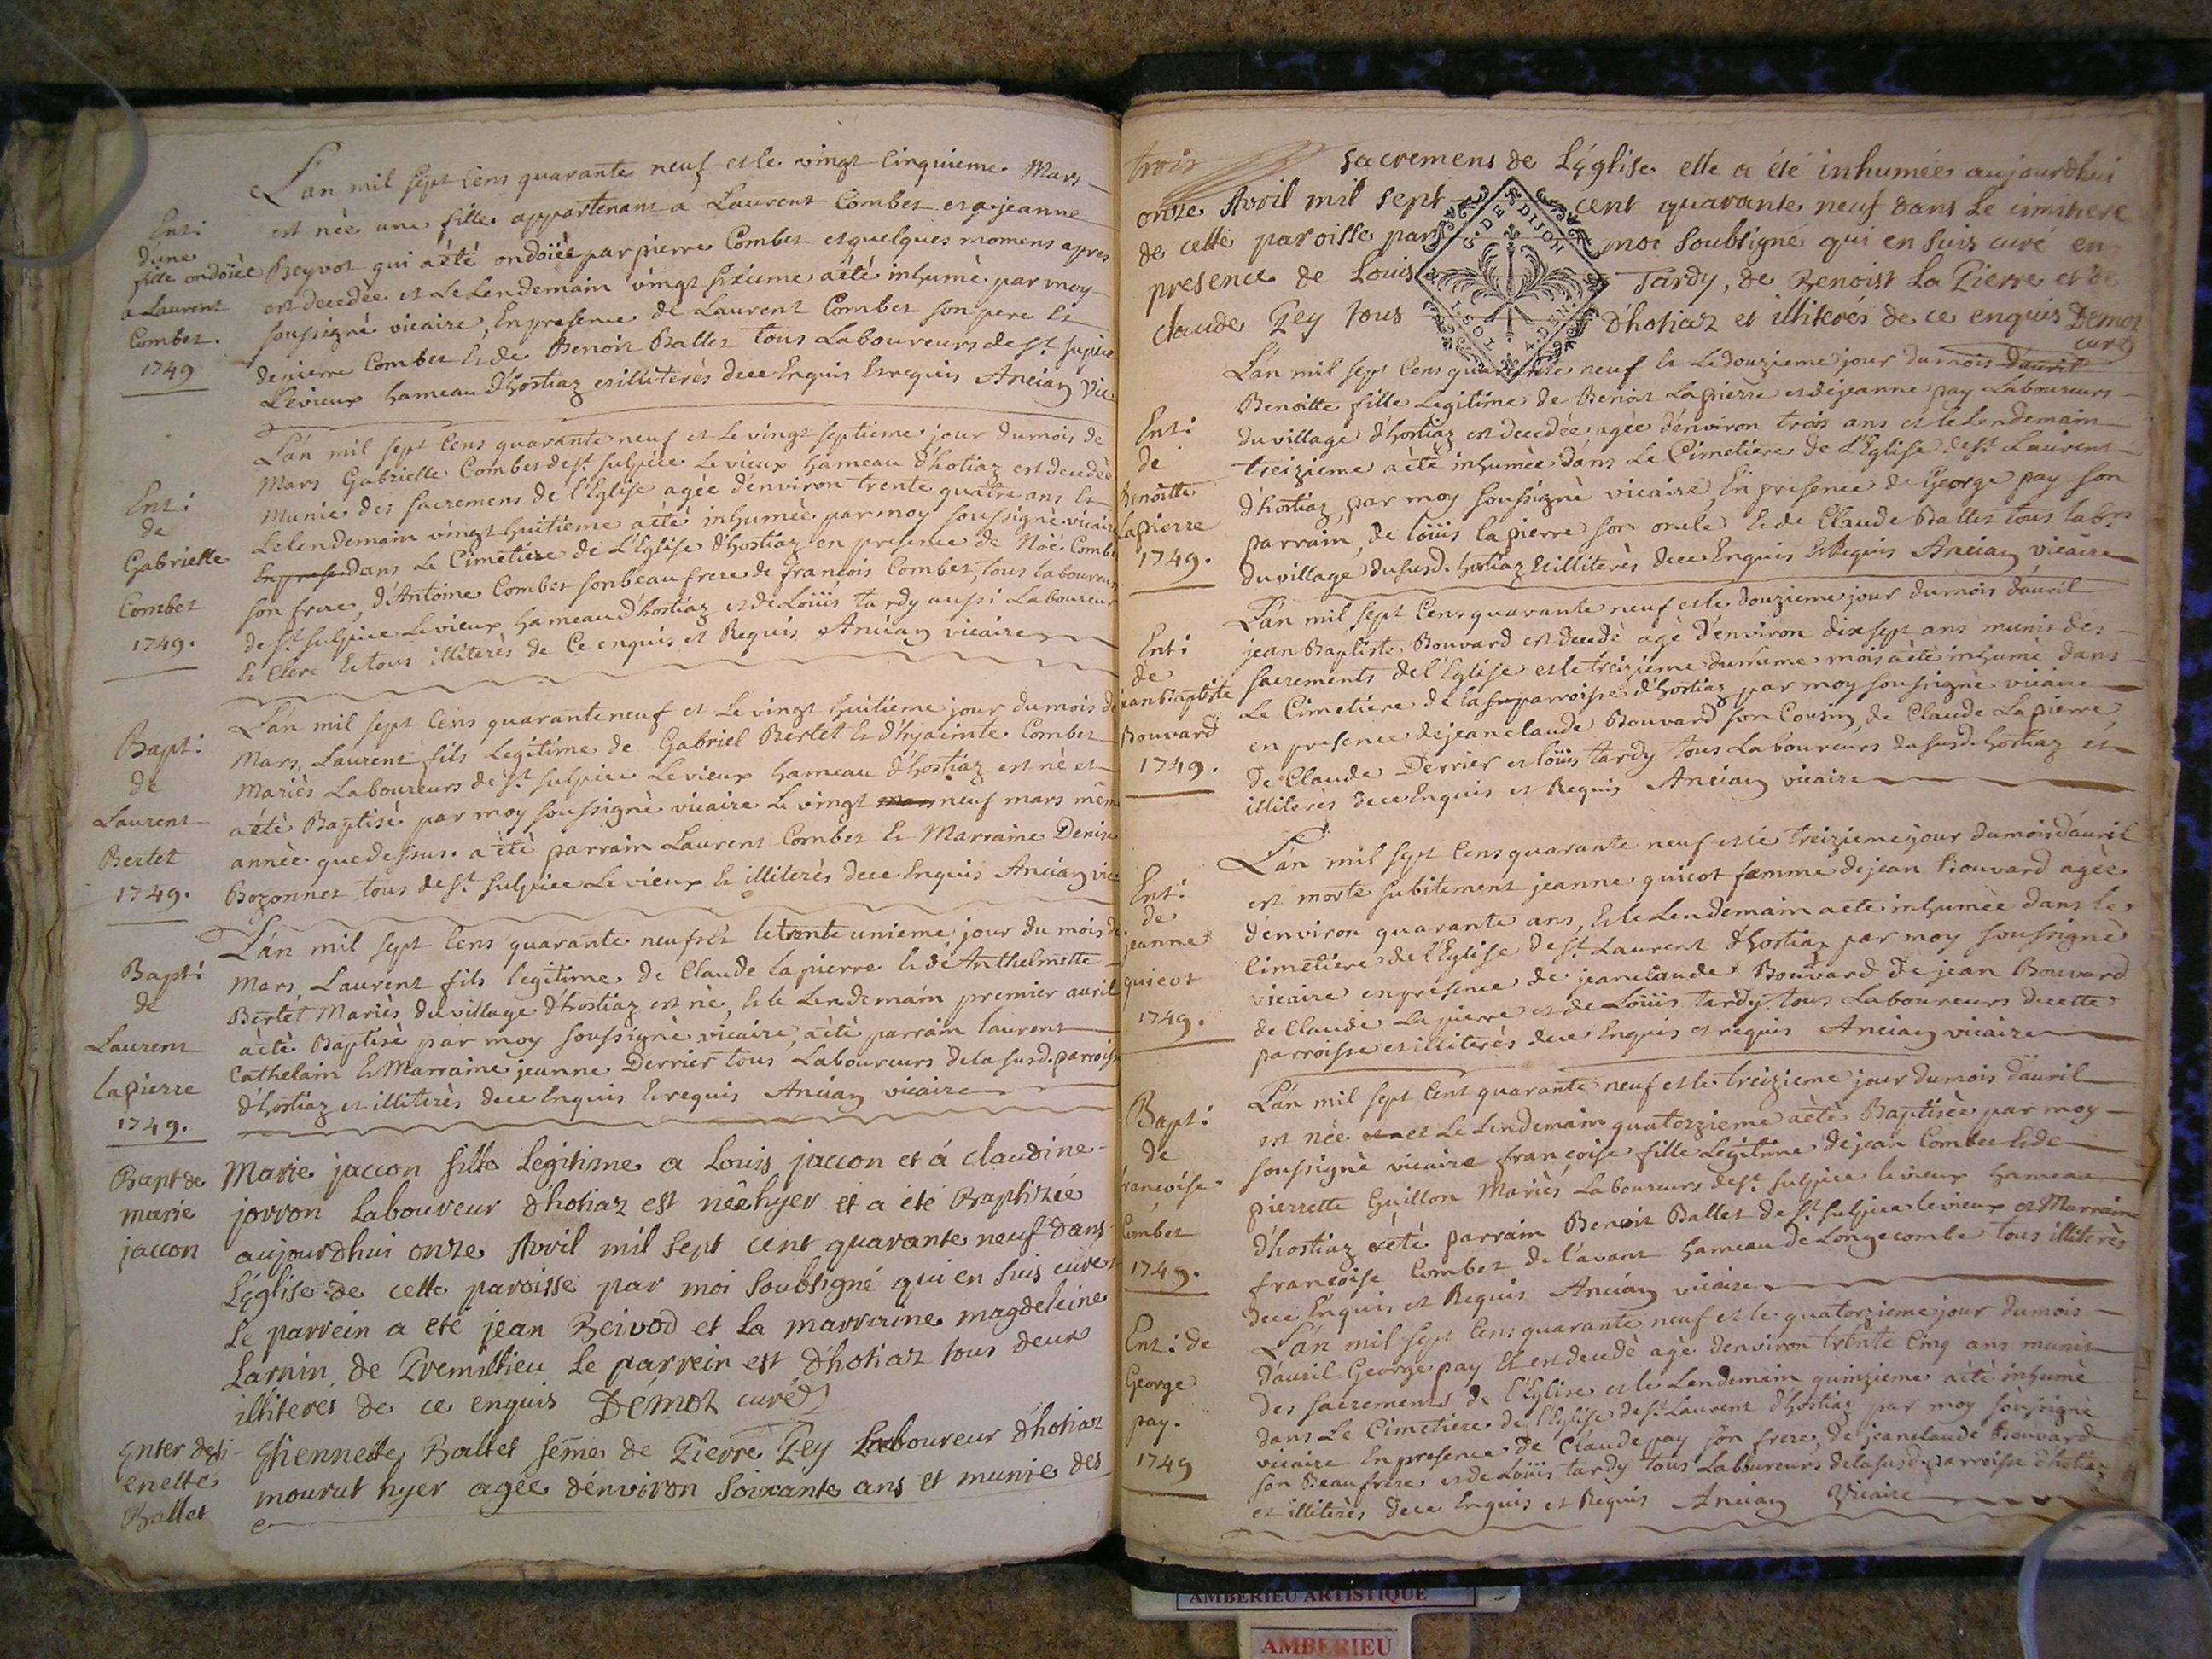 L'an mil sept cens quarante neuf et le vingt cinquieme Mars
Ent: est née une fille appartenant a Laurent Combet et a jeanne
d'une
fille ondoiée Beyvot qui a été ondoiée par pierre Combet et quelques momens apres
a Laurent est decedée et Le Lendemain vingt sixieme a été inhumé par moy
Combet. soussigné vicaire, En presence de Laurent Combet son pere Et
1749 de pierre Combet Et de Benoit Ballet tous Laboureurs de St. Supice
Levieux hameau d'hostiaz et illiterès de ce Enquis Et requis Anciay Vic.
L'an mil sept Cens quarante neuf et Le vingt septieme jour du mois de
Ent: Mars Gabrielle Combet de St. Sulpice Le vieux hameau d'hotiaz est decedée
de Munie des Sacremens de l'Eglise agée d'environ trente quatre ans Et
Gabrielle Le lendemain vingt huitieme a été inhumée par moy soussigné vicaire
Combet En presen dans Le Cimetiere de L'Eglise d'hostiaz en presence de Noë Combe
1749. son frere, d'Antoine Combet son beau frere de françois Combet, tous laboureurs
de St. Sulpice Levieux hameau d'hostiaz et de Loüis tardy aussi Laboureur
Et Clerc Et tous illiterès de Ce enquis et Requis Anciay vicaire
L'an mil sept Cens quarante neuf et Le vingt huitieme jour du mois de
Bapt: Mars, Laurent fils Legitime de Gabriel Bertet Et d'hyacinte Combet
de Mariès Laboureurs de St. Sulpice Levieux hameau d'hostiaz est né et
Laurent a été Baptisé par moy soussigné vicaire Le vingt mars neuf mars même
Bertet année que dessus. a été parrain Laurent Combet Et Marraine Denise
1749. Bozonnet tous de St. Sulpice Le vieux Et illiterès de ce Enquis Anciay vic
L'an mil sept Cens quarante neuf Et le trente unieme jour du mois de
Bapt: Mars, Laurent fils legitime de Claude lapierre Et de Anthelmette
de Bertet Mariès du village d'hostiaz est né, Et le Lendemain premier auril
Laurent a été Baptisé par moy soussigné vicaire, a été parrain laurent
lapierre Cathelain Et Marraine jeanne Derrier tous Laboureurs de la susd. parroisse
1749. d'hostiaz et illiterès de ce Enquis Et requis Anciay vicaire
Bapt de Marie jaccon fille Legitime a Louis jaccon et á claudine
marie jorron Laboureur d'hotiaz est née hyer et a eté Baptizée
jaccon aujourdhui onze Avril mil sept cent quarante neuf dans
L'église de cette paroisse par moi Soubsigné qui en suis curé
Le parrein a eté jean Beivod et La marraine magdeleine
Larnin de Premillieu Le parrein est d'hotiaz tous deux
illiterés de ce enquis Démoz curé
Enter desti- Etiennette Ballet féme de Pierre Pey Laboureur d'hotiaz
enette mourut hyer agée d'environ soixante ans et munie des
Ballet
trois sacremens de L'église elle a été inhumée aujourdhui
onze Avril mil sept cent quarante neuf dans Le cimitiere
de cette paroisse par moi Soubsigné qui en suis curé en
presence de Louis Tardy, de Benoist La Pierre et de
claude Pey tous d'hotiaz et illiterés de ce enquis Demoz
curé
G. DE DIJON
L'an mil sept Cens quarante neuf Et Le douzieme jour du mois d'auril
Benoitte fille Legitime de Benoit Lapierre et de jeanne pay Laboureurs
Ent: du village d'hostiaz est decedée agée d'environ trois ans et le Lendemain
de treizieme a été inhumée dans Le Cimetiere de L'Eglise de St. Laurent
Benoitte d'hostiaz, par moy soussigné vicaire, En presence de George pay son
Lapierre parrain, de loüis lapierre son oncle Et de Claude Ballet tous labrs
1749. du village du susd. hotiaz Et illiterès de ce Enquis Et Requis Anciay vicaire
L'an mil sept Cens quarante neuf et le douzieme jour du mois d'auril
Ent: jean Baptiste Bouvard est decedé agé d'environ dix sept ans munis des
de sacrements de l'Eglise et le treizieme du même mois a été inhumé dans
jean Baptiste Le Cimetiere de la sus parroisse d'hostiaz par moy soussigné vicaire
Bouvard en presence de jeanclaude Bouvard son Cousin, de Claude Lapierre,
1749. De Claude Derrier et loüis tardy tous Laboureurs du susd. hostiaz et
illiterès de ce Enquis et Requis Anciay vicaire
L'an mil sept Cens quarante neuf et le treizieme jour du mois d'auril
Ent: est morte subitement jeanne quicot femme de jean Bouvard agée
de d'environ quarante ans, Et le Lendemain a été inhumée dans le
jeanne Cimetiere de l'Eglise de St. Laurent d'hostiaz par moy soussigné
quicot vicaire en presence de jeanclaude Bouvard de jean Bouvard
1749. de Claude Lapierre et de Loüis tardy tous Laboureurs de cette
parroisse et illiterès de ce Enquis et requis Anciay vicaire
L'an mil sept Cent quarante neuf et le treizieme jour du mois d'auril
Bapt: est née et Le Lendemain quatorzieme a été Baptisée par moy
de soussigné vicaire françoise fille Legitime de jean Combet Et de
françoise pierrette Guillon Mariès Laboureurs de St. Sulpice le vieux hameau
Combet d'hostiaz a été parrain Benoit Ballet de St. Sulpice le vieux et Marraine
1749. françoise Combet de l'avant hameau de Longecombe tous illiterès
de ce Enquis et Requis Anciay vicaire
Ent: de L'an mil sept Cens quarante neuf et le quatorzieme jour du mois
George d'auril George pay est decedé agé d'environ trente Cinq ans munis
pay. des sacrements de l'Eglise et le Lendemain quinzieme a été inhumé
1749 dans Le Cimetiere de l'Eglise de St. Laurent d'hostiaz par moy soussigné
vicaire En presence de Claude pay son frere, de jeanclaude Bouvard
son Beaufrere et de Loüis tardy tous Laboureurs de la susd. parroisse d'hotiaz
et illiterès de ce Enquis et Requis Anciay Vicaire
AMBERIEU ARTISTIQUE
AMBERIEU